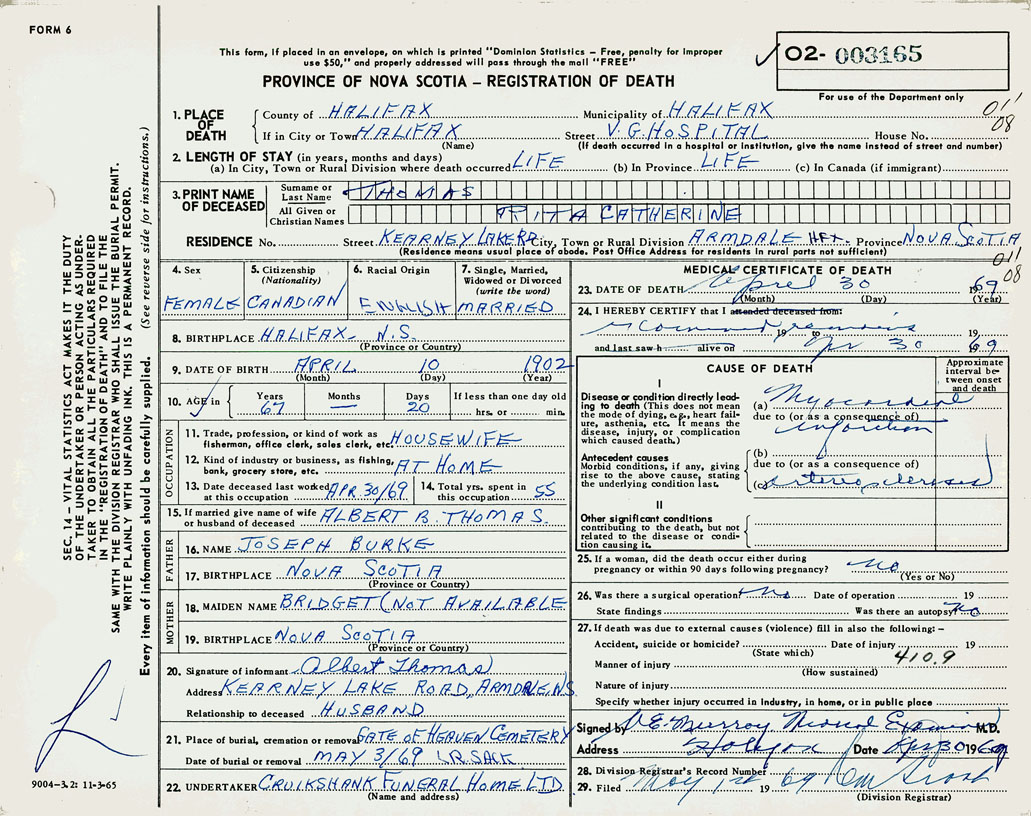 FORM 6
This form, if placed in an envelope, on which is printed "Dominion Statistics – Free, penalty for improper
use $50," and properly addressed will pass through the mail "FREE"
O2- 003165
PROVINCE OF NOVA SCOTIA – REGISTRATION OF DEATH
For use of the Department only
1. PLACE OF DEATH
County of HALIFAX Municipality of HALIFAX
011
08
If in City or Town HALIFAX Street V.G. HOSPITAL House No.
(Name) (If death occurred in a hospital or institution, give the name instead of street and number)
2. LENGTH OF STAY (in years, months and days)
(a) In City, Town or Rural Division where death occurred LIFE (b) In Province LIFE (c) In Canada (if immigrant)
3. PRINT NAME OF DECEASED
Surname or Last Name THOMAS
All Given or Christian Names RITA CATHERINE
RESIDENCE No. Street KEARNEY LAKE RD. City, Town or Rural Division ARMDALE HFX. Province NOVA SCOTIA
(Residence means usual place of abode. Post Office Address for residents in rural parts not sufficient)
011
08
4. Sex
FEMALE
5. Citizenship
(Nationality)
CANADIAN
6. Racial Origin
ENGLISH
7. Single, Married,
Widowed or Divorced
(write the word)
MARRIED
8. BIRTHPLACE HALIFAX N.S.
(Province or Country)
9. DATE OF BIRTH APRIL 10 1902
(Month) (Day) (Year)
10. AGE in
Years 67
Months —
Days 20
If less than one day old
hrs. or min.
OCCUPATION
11. Trade, profession, or kind of work as
fisherman, office clerk, sales clerk, etc. HOUSEWIFE
12. Kind of industry or business, as fishing,
bank, grocery store, etc. AT HOME
13. Date deceased last worked
at this occupation APR. 30/69
14. Total yrs. spent in
this occupation 55
15. If married give name of wife
or husband of deceased ALBERT B. THOMAS.
FATHER
16. NAME JOSEPH BURKE
17. BIRTHPLACE NOVA SCOTIA
(Province or Country)
MOTHER
18. MAIDEN NAME BRIDGET (NOT AVAILABLE
19. BIRTHPLACE NOVA SCOTIA
(Province or Country)
20. Signature of informant Albert Thomas
Address KEARNEY LAKE ROAD, ARMDALE, NS
Relationship to deceased HUSBAND
21. Place of burial, cremation or removal GATE OF HEAVEN CEMETERY
Date of burial or removal MAY 3/69 LR. SACK.
22. UNDERTAKER CRUIKSHANK FUNERAL HOME LTD
(Name and address)
MEDICAL CERTIFICATE OF DEATH
23. DATE OF DEATH April 30 1969
(Month) (Day) (Year)
24. I HEREBY CERTIFY that I attended deceased from:
examined remains 19 to 19
and last saw h alive on Apr 30 1969
CAUSE OF DEATH
Approximate
interval be-
tween onset
and death
I
Disease or condition directly lead-
ing to death (This does not mean
the mode of dying, e.g., heart fail-
ure, asthenia, etc. It means the
disease, injury, or complication
which caused death.)
(a) Myocardial
due to (or as a consequence of)
infarction
Antecedent causes
Morbid conditions, if any, giving
rise to the above cause, stating
the underlying condition last.
(b)
due to (or as a consequence of)
(c) arteriosclerosis
II
Other significant conditions
contributing to the death, but not
related to the disease or condi-
tion causing it.
25. If a woman, did the death occur either during
pregnancy or within 90 days following pregnancy? no
(Yes or No)
26. Was there a surgical operation no Date of operation 19
State findings Was there an autopsy? no
27. If death was due to external causes (violence) fill in also the following: –
Accident, suicide or homicide? Date of injury 19
(State which)
410.9
Manner of injury
(How sustained)
Nature of injury
Specify whether injury occurred in industry, in home, or in public place
Signed by V.E. Murray Medical Examiner M.D.
Address Halifax Date Apr 30 1969
28. Division Registrar's Record Number
29. Filed May 1st 1969
(Division Registrar)
SEC. 14 – VITAL STATISTICS ACT MAKES IT THE DUTY
OF THE UNDERTAKER OR PERSON ACTING AS UNDER-
TAKER TO OBTAIN ALL THE PARTICULARS REQUIRED
IN THE "REGISTRATION OF DEATH" AND TO FILE THE
SAME WITH THE DIVISION REGISTRAR WHO SHALL ISSUE THE BURIAL PERMIT.
WRITE PLAINLY WITH UNFADING INK. THIS IS A PERMANENT RECORD.
Every item of information should be carefully supplied. (See reverse side for instructions.)
9004-3.2: 11-3-65